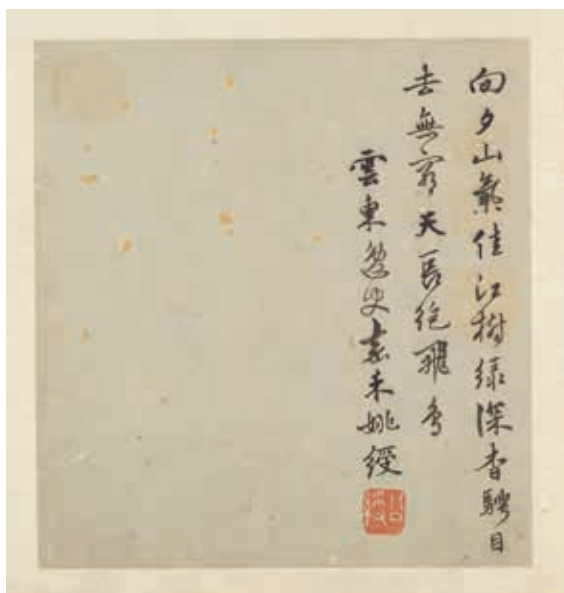 向夕山氣佳江樹綠深杳騁目
去無窮天長絕飛鳥
雲東逸史嘉禾姚綬
公綬